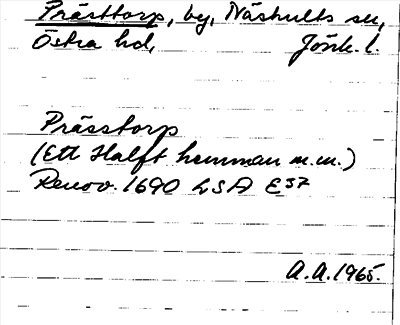 Prästtorp, by, Näshults sn,
Östra hd, Jönk. l.
Prässtorp
(Ett Halft hemman m.m.)
Renov. 1690 LSA E57
A.A. 1965.